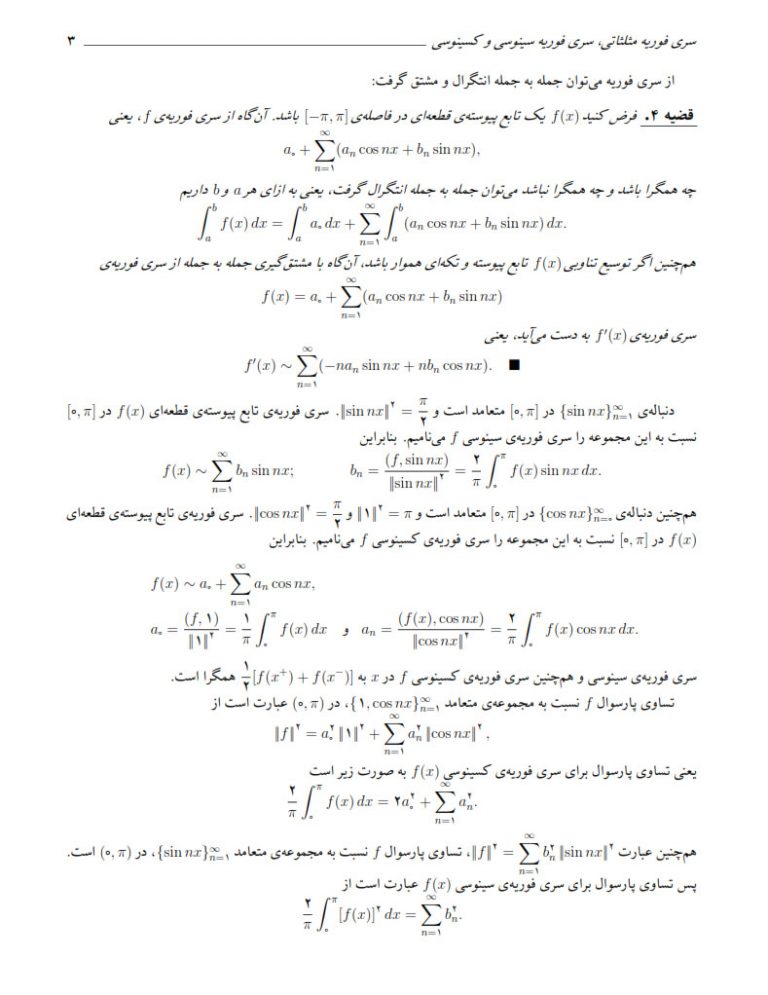 سری فوریه مثلثاتی، سری فوریه سینوسی و کسینوسی ۳
از سری فوریه می‌توان جمله به جمله انتگرال و مشتق گرفت:
قضیه ۴. فرض کنید f(x) یک تابع پیوسته‌ی قطعه‌ای در فاصله‌ی [−π, π] باشد. آن‌گاه از سری فوریه‌ی f، یعنی
a₀ + ∑_{n=۱}^{∞} (aₙ cos nx + bₙ sin nx),
چه همگرا باشد و چه همگرا نباشد می‌توان جمله به جمله انتگرال گرفت، یعنی به ازای هر a و b داریم
∫_a^b f(x) dx = ∫_a^b a₀ dx + ∑_{n=۱}^{∞} ∫_a^b (aₙ cos nx + bₙ sin nx) dx.
هم‌چنین اگر توسیع تناوبی f(x) تابع پیوسته و تکه‌ای هموار باشد، آن‌گاه با مشتق‌گیری جمله به جمله از سری فوریه‌ی
f(x) = a₀ + ∑_{n=۱}^{∞} (aₙ cos nx + bₙ sin nx)
سری فوریه‌ی f′(x) به دست می‌آید، یعنی
f′(x) ∼ ∑_{n=۱}^{∞} (−naₙ sin nx + nbₙ cos nx). ■
دنباله‌ی {sin nx}_{n=۱}^{∞} در [۰, π] متعامد است و ‖sin nx‖² = π/۲. سری فوریه‌ی تابع پیوسته‌ی قطعه‌ای f(x) در [۰, π]
نسبت به این مجموعه را سری فوریه‌ی سینوسی f می‌نامیم. بنابراین
f(x) ∼ ∑_{n=۱}^{∞} bₙ sin nx; bₙ = (f, sin nx)/‖sin nx‖² = ۲/π ∫_۰^π f(x) sin nx dx.
هم‌چنین دنباله‌ی {cos nx}_{n=۰}^{∞} در [۰, π] متعامد است و ‖۱‖² = π و ‖cos nx‖² = π/۲. سری فوریه‌ی تابع پیوسته‌ی قطعه‌ای
f(x) در [۰, π] نسبت به این مجموعه را سری فوریه‌ی کسینوسی f می‌نامیم. بنابراین
f(x) ∼ a₀ + ∑_{n=۱}^{∞} aₙ cos nx,
a₀ = (f, ۱)/‖۱‖² = ۱/π ∫_۰^π f(x) dx و aₙ = (f(x), cos nx)/‖cos nx‖² = ۲/π ∫_۰^π f(x) cos nx dx.
سری فوریه‌ی سینوسی و هم‌چنین سری فوریه‌ی کسینوسی f در x به ۱/۲[f(x⁺) + f(x⁻)] همگرا است.
تساوی پارسوال f نسبت به مجموعه‌ی متعامد {۱, cos nx}_{n=۱}^{∞}، در (۰, π) عبارت است از
‖f‖² = a₀² ‖۱‖² + ∑_{n=۱}^{∞} aₙ² ‖cos nx‖²,
یعنی تساوی پارسوال برای سری فوریه‌ی کسینوسی f(x) به صورت زیر است
۲/π ∫_۰^π f(x) dx = ۲a₀² + ∑_{n=۱}^{∞} aₙ².
هم‌چنین عبارت ‖f‖² = ∑_{n=۱}^{∞} bₙ² ‖sin nx‖²، تساوی پارسوال f نسبت به مجموعه‌ی متعامد {sin nx}_{n=۱}^{∞}، در (۰, π) است.
پس تساوی پارسوال برای سری فوریه‌ی سینوسی f(x) عبارت است از
۲/π ∫_۰^π [f(x)]² dx = ∑_{n=۱}^{∞} bₙ².